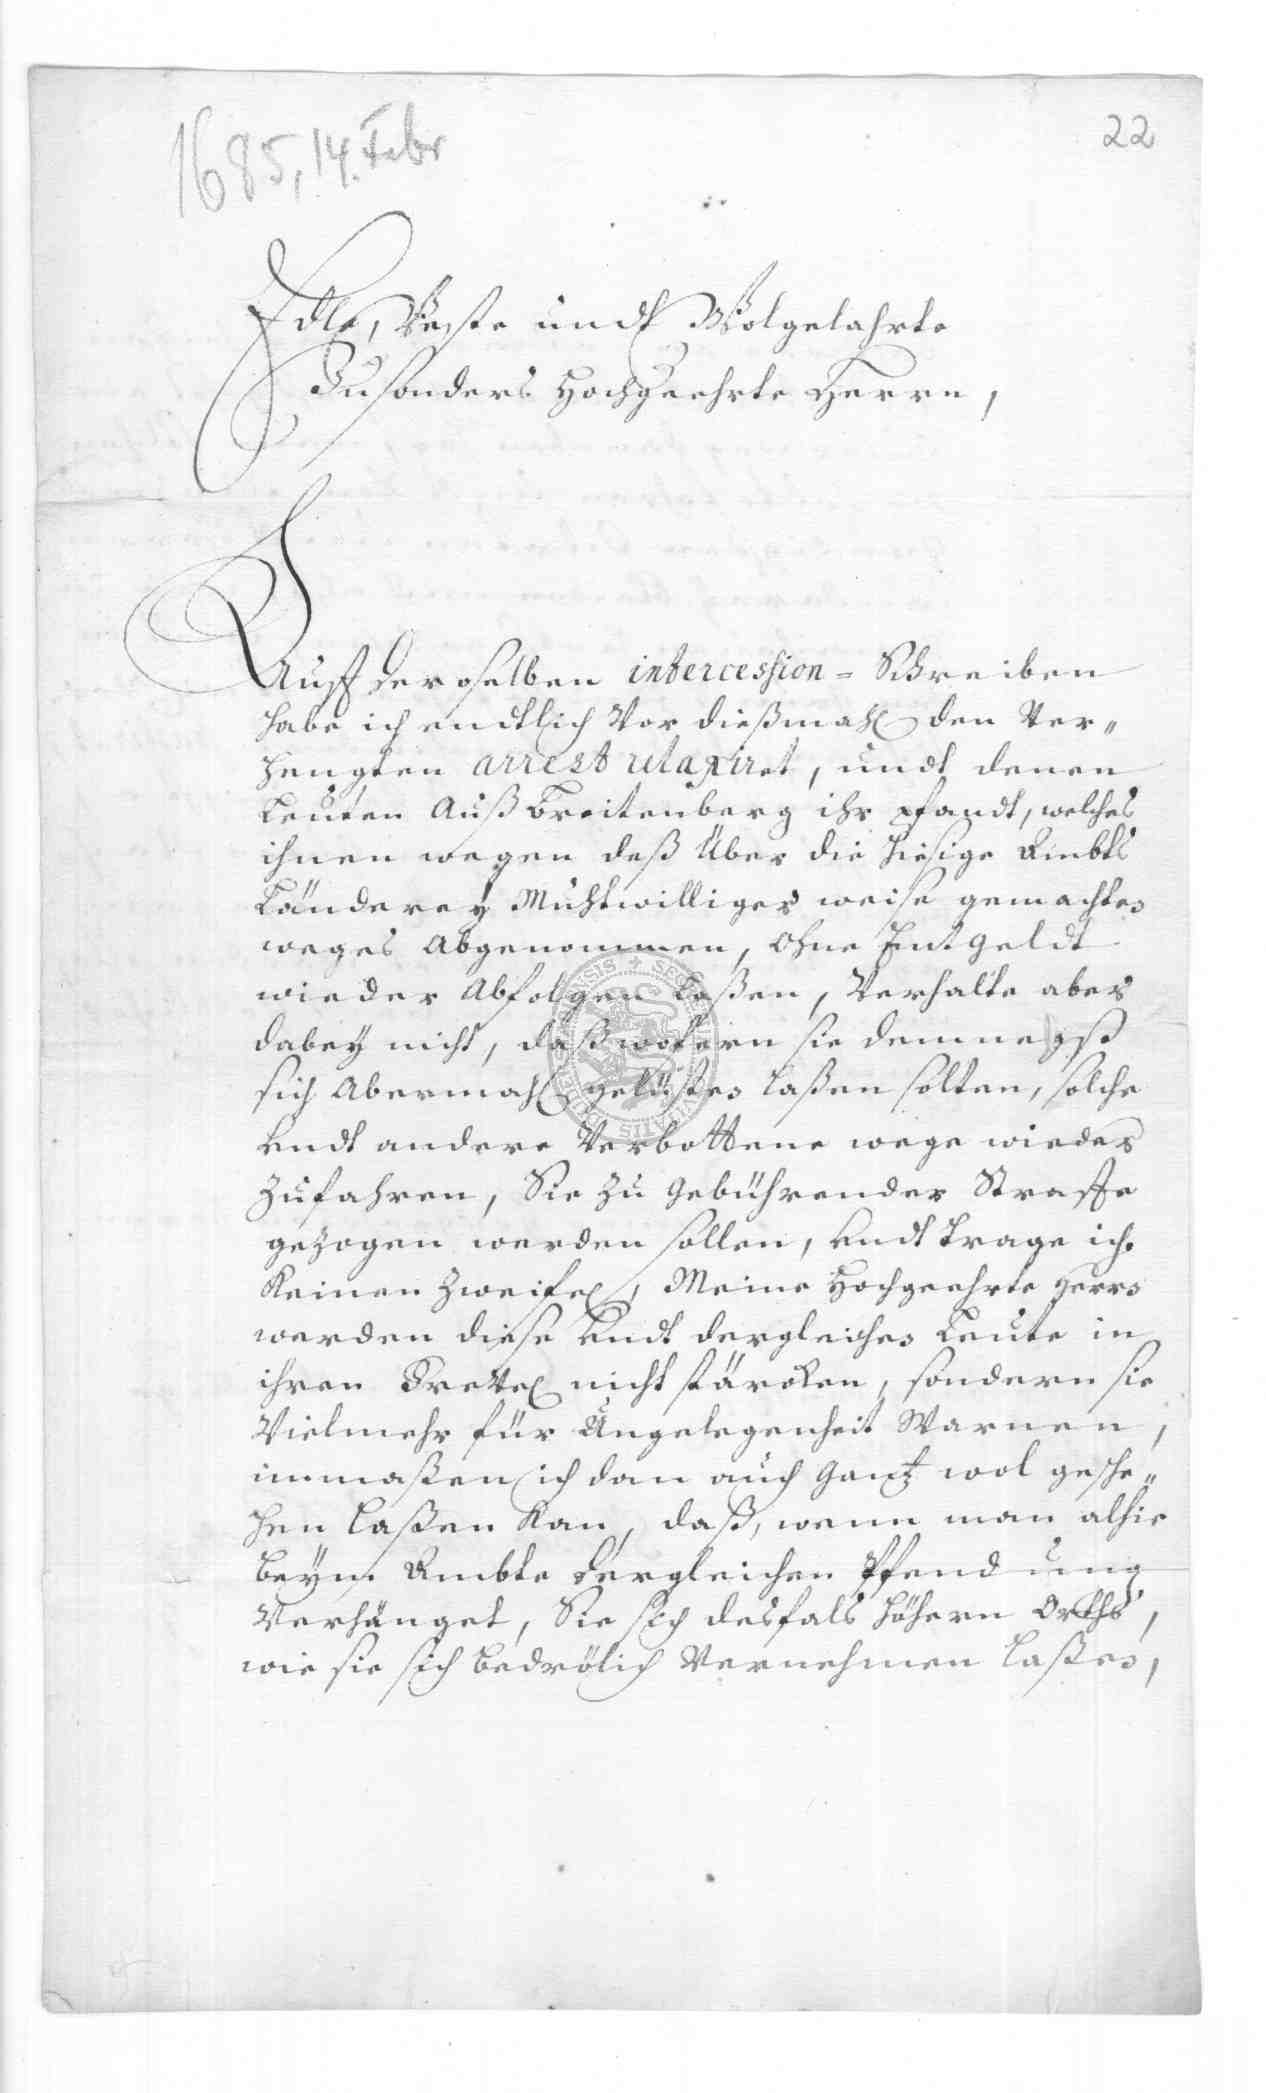 1685, 14. Febr
22
Edle, Veste undt Wolgelahrte
Insonders Hochgeehrte Herrn,
Auff deroselben intercession-Schreiben
habe ich endtlich Vor dießmahl den Ver„
hengten arrest relaxiret, undt denen
Leuten Auß Breitenberg ihr pfandt, welches
ihnen wegen deß Über die hiesige Ambts
Länderey Muhtwilliger weise gemachten
weges Abgenommen, ohne Entgeldt
wieder Abfolgen laßen, Verhalte aber
dabey nicht, daß wofern sie demnegst
sich Abermahl gelüsten laßen solten, solche
undt andere Verbottene wege wieder
Zufahren, Sie Zu gebührender Straffe
gezogen werden sollen, undt trage ich
Keinen Zweifel, Meine Hochgeehrte Herrn
werden diese undt dergleichen Leute in
ihren Frevel nicht stärcken, sondern sie
Vielmehr für Ungelegenheit Warnen,
inmaßen ich dan auch Gantz wol gesche„
hen laßen Kan, daß, wenn man alhie
beym Ambte dergleichen Pfendung
Verhänget, Sie sich desfals höhern Orths,
wie sie sich bedrölich Vernehmen laßen,